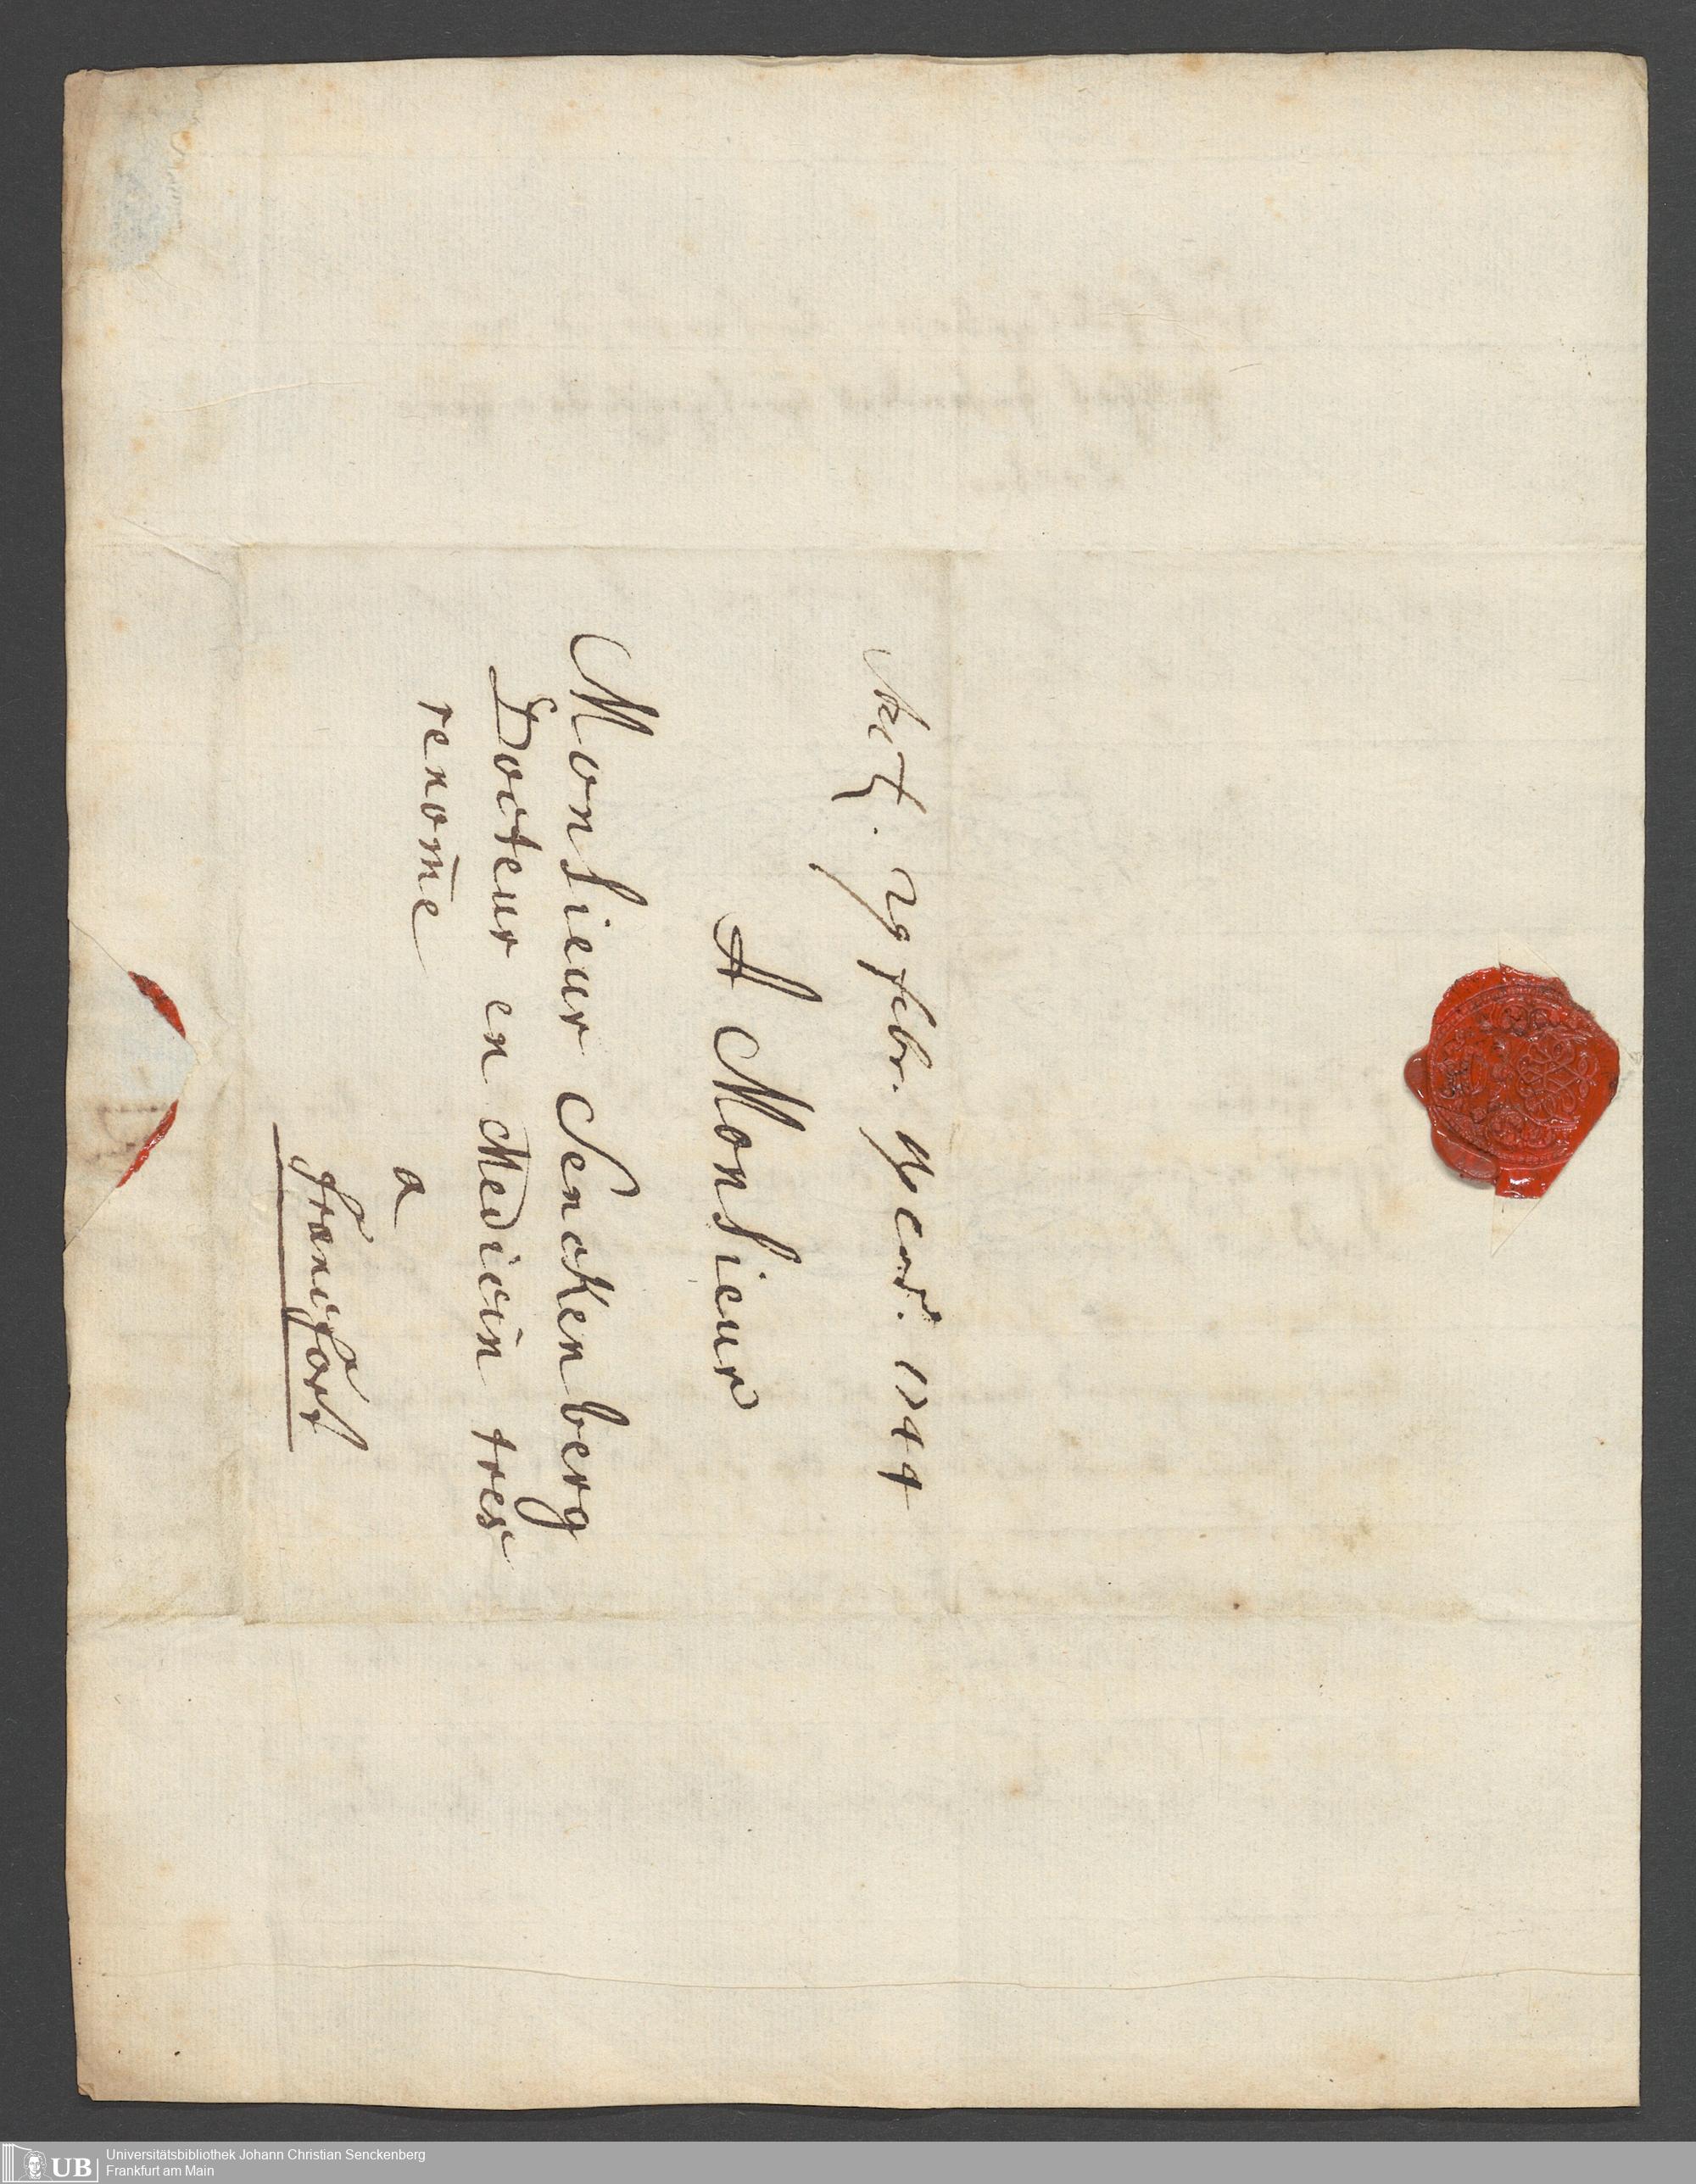 29 febr. 1744
A Monsieur
Monsieur Senckenberg
Docteur en Medicin tres
renom̄e
a
francfort
Universitätsbibliothek Johann Christian Senckenberg
Frankfurt am Main
UB